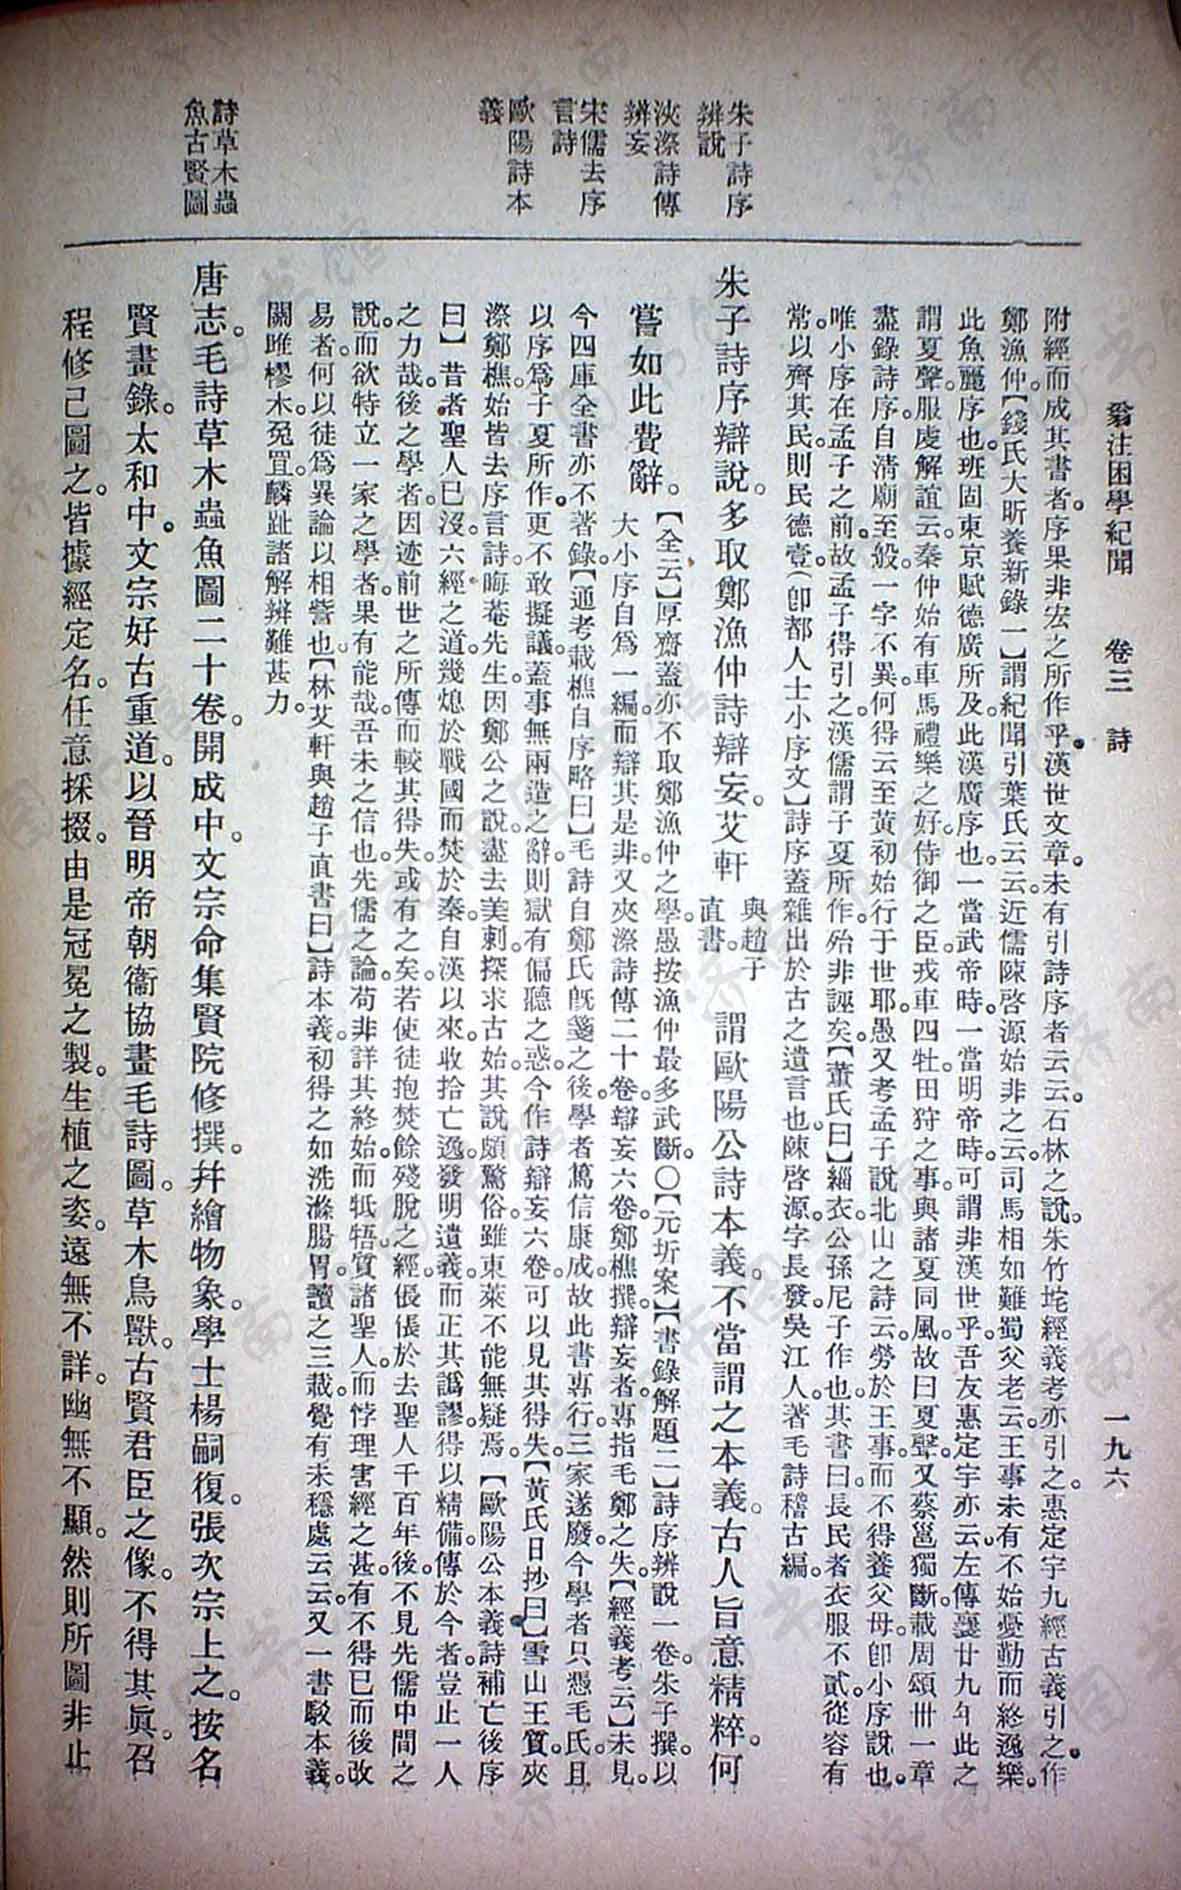 翁注困學紀聞　卷三　詩　一九六
朱子詩序
辨說
浹漈詩傳
辨妄
宋儒去序
言詩
歐陽詩本
義
詩草木蟲
魚古賢圖
附經而成其書者。序果非宏之所作乎。漢世文章。未有引詩序者云云。石林之說。朱竹垞經義考亦引之。惠定宇九經古義引之。作
鄭漁仲。【錢氏大昕養新錄一】謂紀聞引葉氏云云。近儒陳啓源始非之云。司馬相如難蜀父老云。王事未有不始憂勤而終逸樂。
此魚麗序也。班固東京賦德廣所及。此漢廣序也。一當武帝時。一當明帝時。可謂非漢世乎。吾友惠定宇亦云。左傳襄廿九年。此之
謂夏聲。服虔解誼云。秦仲始有車馬禮樂之好。侍御之臣。戎車四牡。田狩之事。與諸夏同風。故曰夏聲。又蔡邕獨斷。載周頌卅一章
盡錄詩序。自清廟至般。一字不異。何得云至黃初始行于世耶。愚又考孟子說北山之詩云。勞於王事。而不得養父母。卽小序說也。
唯小序在孟子之前。故孟子得引之。漢儒謂子夏所作。殆非誣矣。【董氏曰】緇衣。公孫尼子作也。其書曰。長民者衣服不貳。從容有
常。以齊其民。則民德壹。（卽都人士小序文】詩序蓋雜出於古之遺言也。陳啓源。字長發。吳江人。著毛詩稽古編。
朱子詩序辯說。多取鄭漁仲詩辯妄。艾軒與趙子直書。謂歐陽公詩本義。不當謂之本義。古人旨意精粹。何
嘗如此費辭。【全云】厚齋蓋亦不取鄭漁仲之學。愚按漁仲最多武斷。〇【元圻案】【書錄解題二】詩序辨說一卷。朱子撰。以
大小序自爲一編。而辯其是非。又夾漈詩傳二十卷。辯妄六卷。鄭樵撰。辯妄者。專指毛鄭之失。【經義考云】未見。
今四庫全書亦不著錄。【通考載樵自序略曰】毛詩自鄭氏旣箋之後。學者篤信康成。故此書專行。三家遂廢。今學者只憑毛氏。且
以序爲子夏所作。更不敢擬議。蓋事無兩造之辭。則獄有偏聽之惑。今作詩辯妄六卷。可以見其得失。【黃氏日抄曰】雪山王質。夾
漈鄭樵。始皆去序言詩。晦菴先生。因鄭公之說。盡去美刺。探求古始。其說頗驚俗。雖東萊不能無疑焉。【歐陽公本義詩補亡後序
曰】昔者。聖人已沒。六經之道。幾熄於戰國。而焚於秦。自漢以來。收拾亡逸。發明遺義。而正其譌謬。得以精備。傳於今者。豈止一人
之力哉。後之學者。因迹前世之所傳。而較其得失。或有之矣。若使徒抱焚餘殘脫之經。倀倀於去聖人千百年後。不見先儒中間之
說。而欲特立一家之學者。果有能哉。吾未之信也。先儒之論。苟非詳其終始。而牴牾。質諸聖人。而悖理害經之甚。有不得已而後改
易者。何以徒爲異論以相訾也。【林艾軒與趙子直書曰】詩本義。初得之如洗滌腸胃。讀之三載。覺有未穩處云云。又一書駁本義。
關雎樛木。兔罝。麟趾諸解辨難甚力。
唐志。毛詩草木蟲魚圖二十卷。開成中。文宗命集賢院修撰。幷繪物象。學士楊嗣復。張次宗上之。按名
賢畫錄。太和中。文宗好古重道。以晉明帝朝衞協畫毛詩圖。草木鳥獸。古賢君臣之像。不得其眞。召
程修己圖之。皆據經定名。任意採掇。由是冠冕之製。生植之姿。遠無不詳。幽無不顯。然則所圖非止